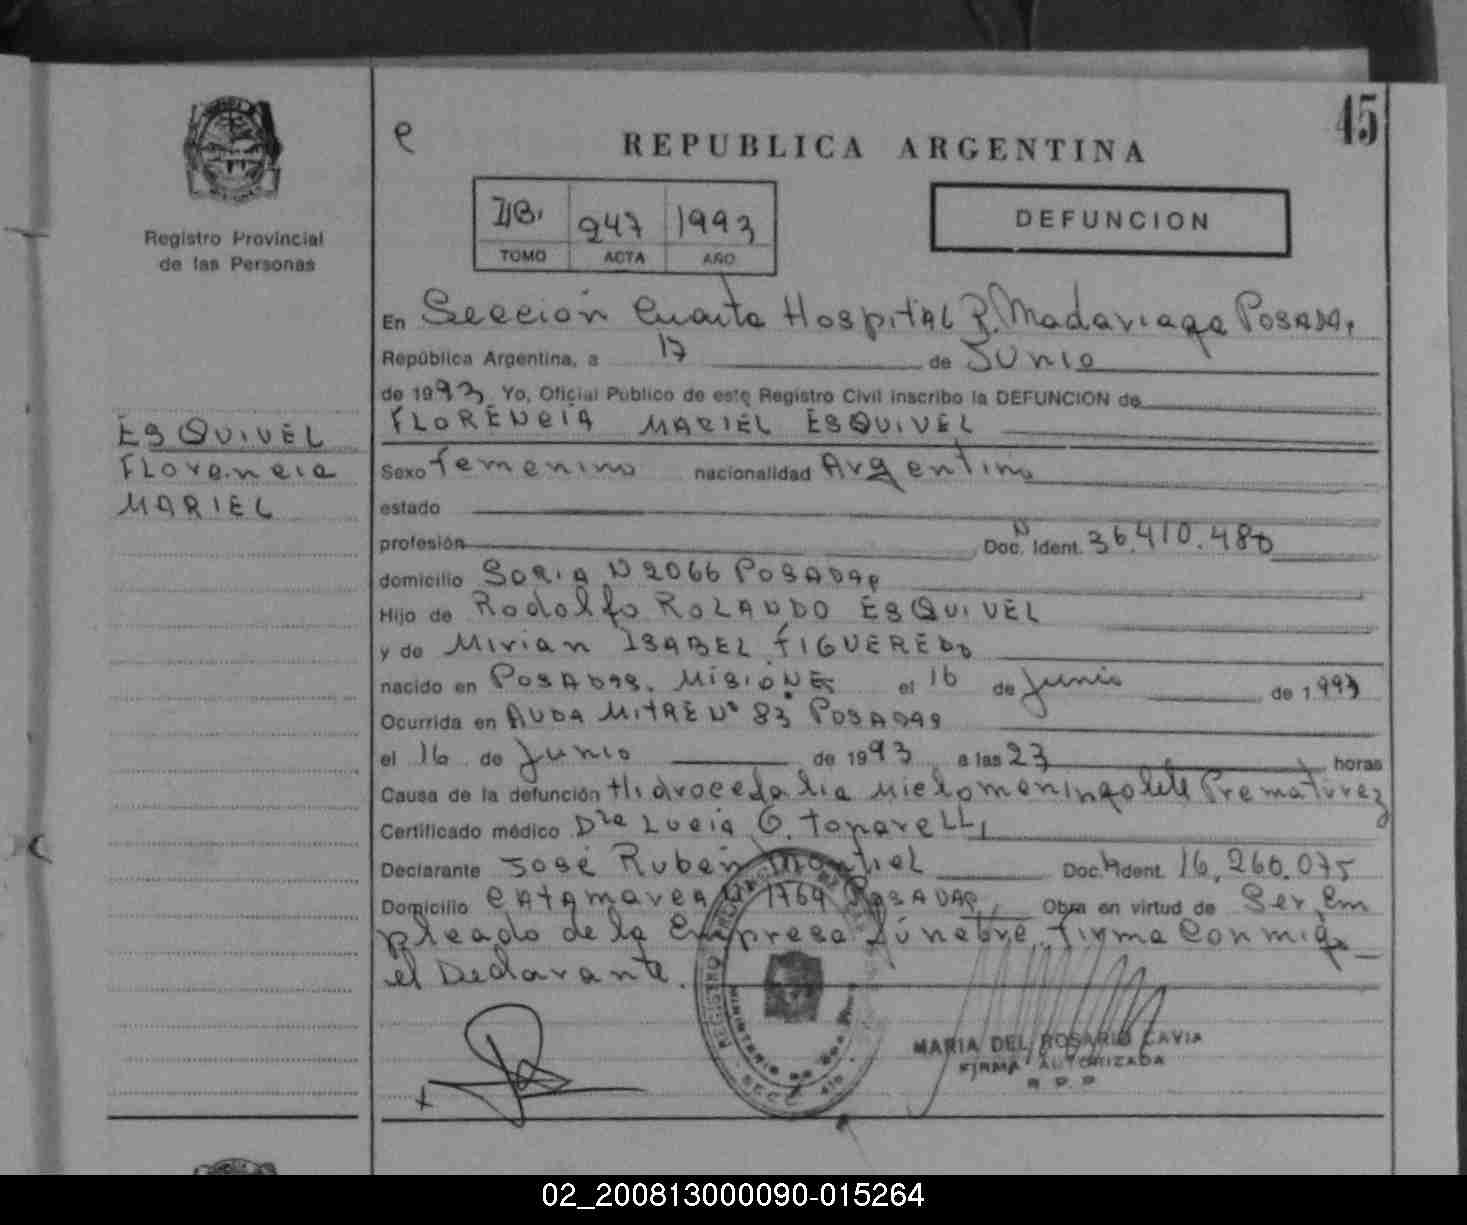 45
e
REPUBLICA ARGENTINA
Registro Provincial
de las Personas
247 1993
TOMO ACTA AÑO
DEFUNCION
En Sección Cuarta Hospital R. Madariaga Posadas
República Argentina, a 17 de Junio
de 1993 Yo, Oficial Público de este Registro Civil inscribo la DEFUNCION de
FLORENCIA MARIEL ESQUIVEL
ESQUIVEL
Florencia
MARIEL
Sexo femenino nacionalidad Argentina
estado
profesión Doc. N Ident. 36.410.480
domicilio SORIA N 2066 POSADAS
Hijo de Rodolfo ROLANDO ESQUIVEL
y de Mirian ISABEL FIGUEREDO
nacido en POSADAS. MISIONES el 16 de Junio de 1.993
Ocurrida en AVDA MITRE Nº 83 POSADAS
el 16 de Junio de 1993 a las 23 horas
Causa de la defunción Hidrocefalia Mielomeningolele Prematurez
Certificado médico Dra Lucia G. Toparelli
Declarante José Rubén Montiel Doc. N Ident. 16.260.075
Domicilio CATAMARCA N 1764 POSADAS, Obra en virtud de Ser Em
pleado de la Empresa fúnebre, firma conmigo
el Declarante.
MARIA DEL ROSARIO CAVIA
FIRMA AUTORIZADA
R. P. P
02_200813000090-015264